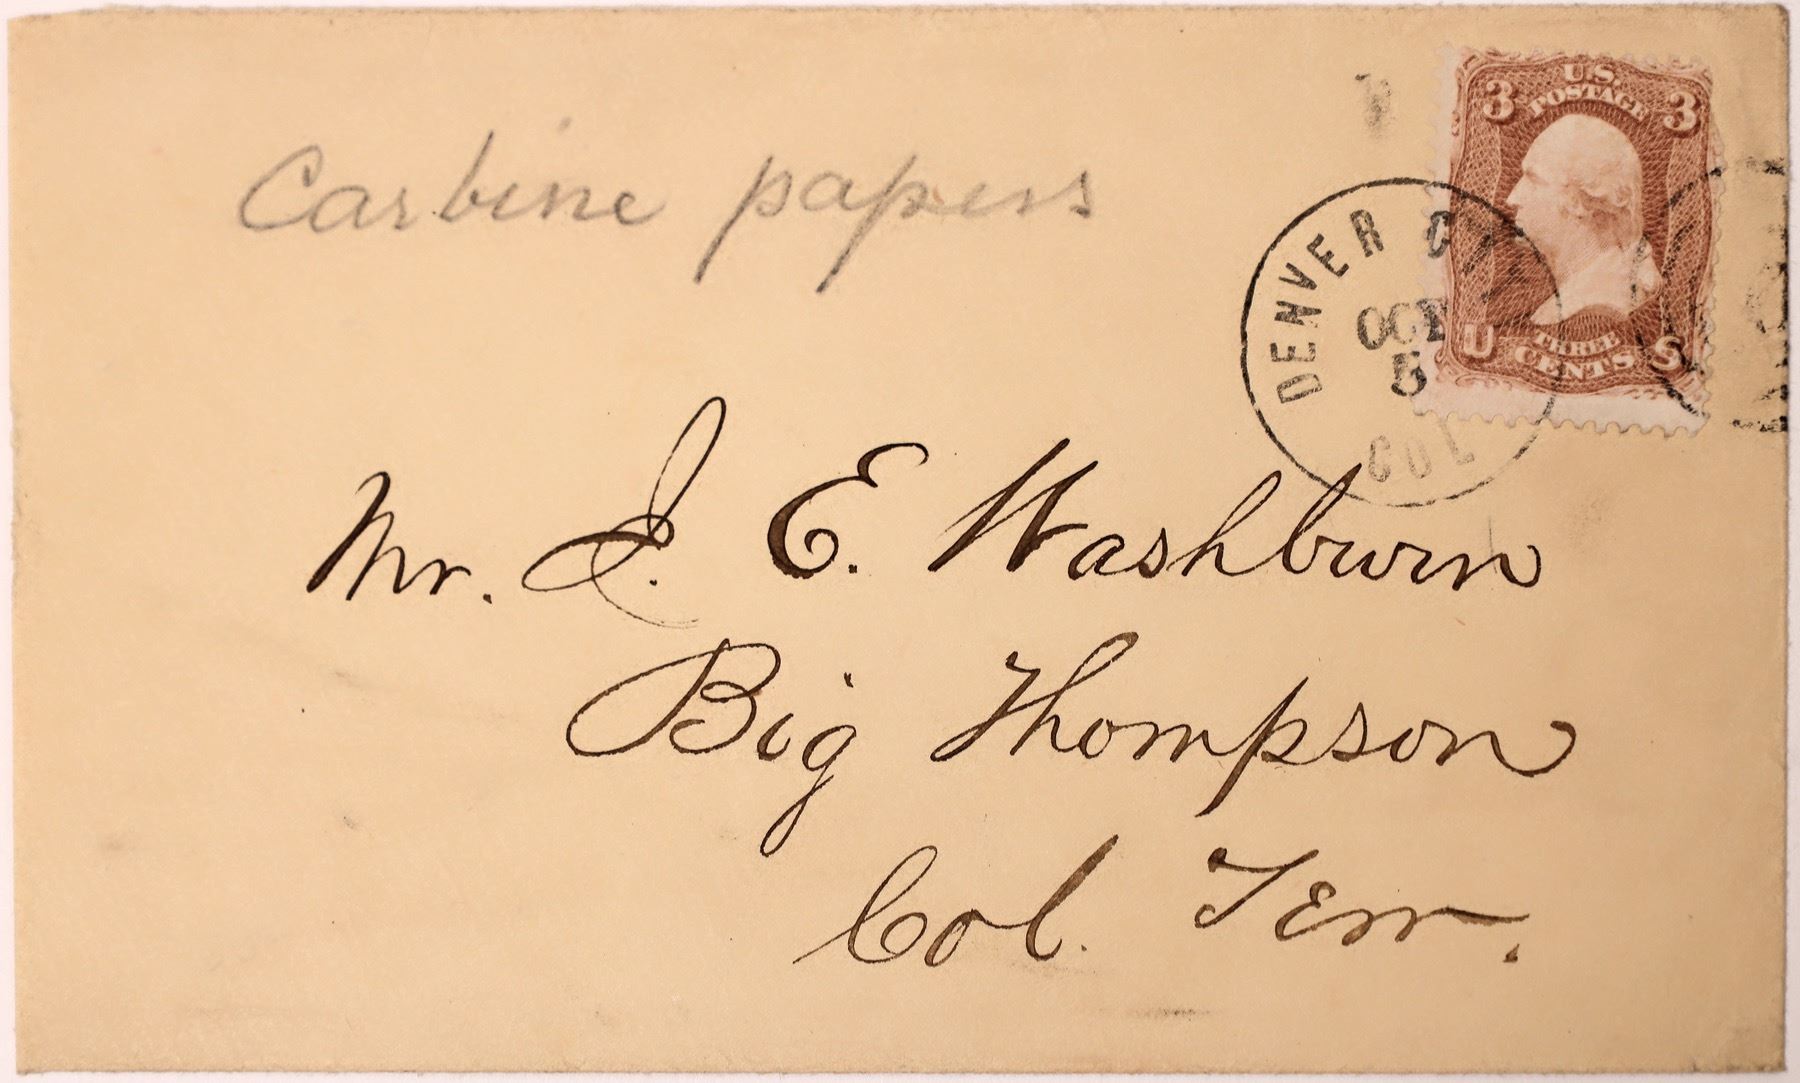 Carbine papers
U.S.
POSTAGE
3 3
DENVER CITY
OCT
5
COL
U S
THREE
CENTS
Mr. J. E. Washburn
Big Thompson
Col. Terr.